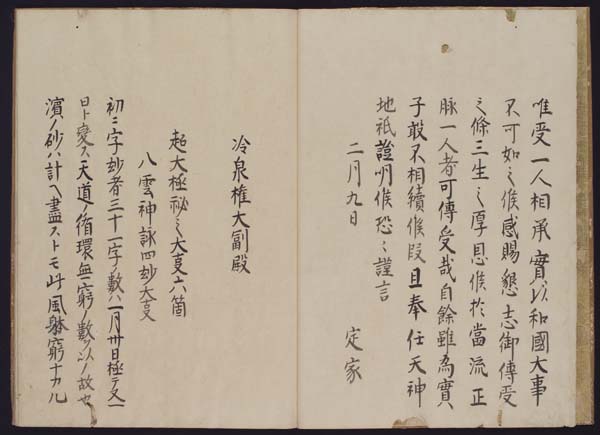 唯受一人相承實以和國大事
不可如之候感賜懇志御傳受
之條三生之厚恩候於當流正
脉一人者可傳受哉自餘雖為實
子敢不相續候段且奉任天神
地祇證明候恐〻謹言
二月九日
定家
冷泉権大副殿
超大極秘之大事六箇
八雲神詠四妙大事
初ニ字妙者三十一字ノ數ハ一月卅日極テ又一
日ト変ス天道ノ循環無窮ノ數ヲ以ノ故也
濱ノ砂ハ計ヘ盡ストモ此風躰窮ナカル